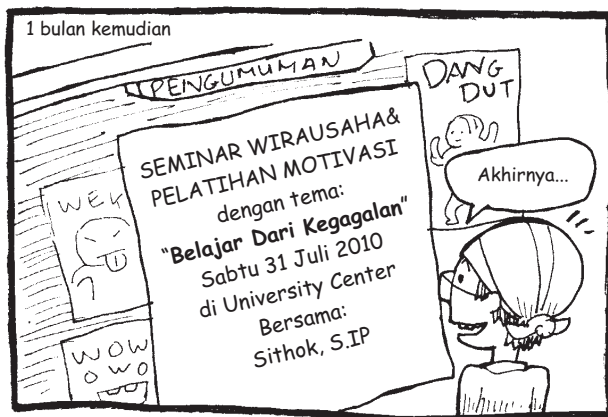 1 bulan kemudian
PENGUMUMAN
DANG
DUT
SEMINAR WIRAUSAHA&
PELATIHAN MOTIVASI
dengan tema:
“Belajar Dari Kegagalan”
Sabtu 31 Juli 2010
di University Center
Bersama:
Sithok, S.IP
Akhirnya...
WEK
WOW
OWO